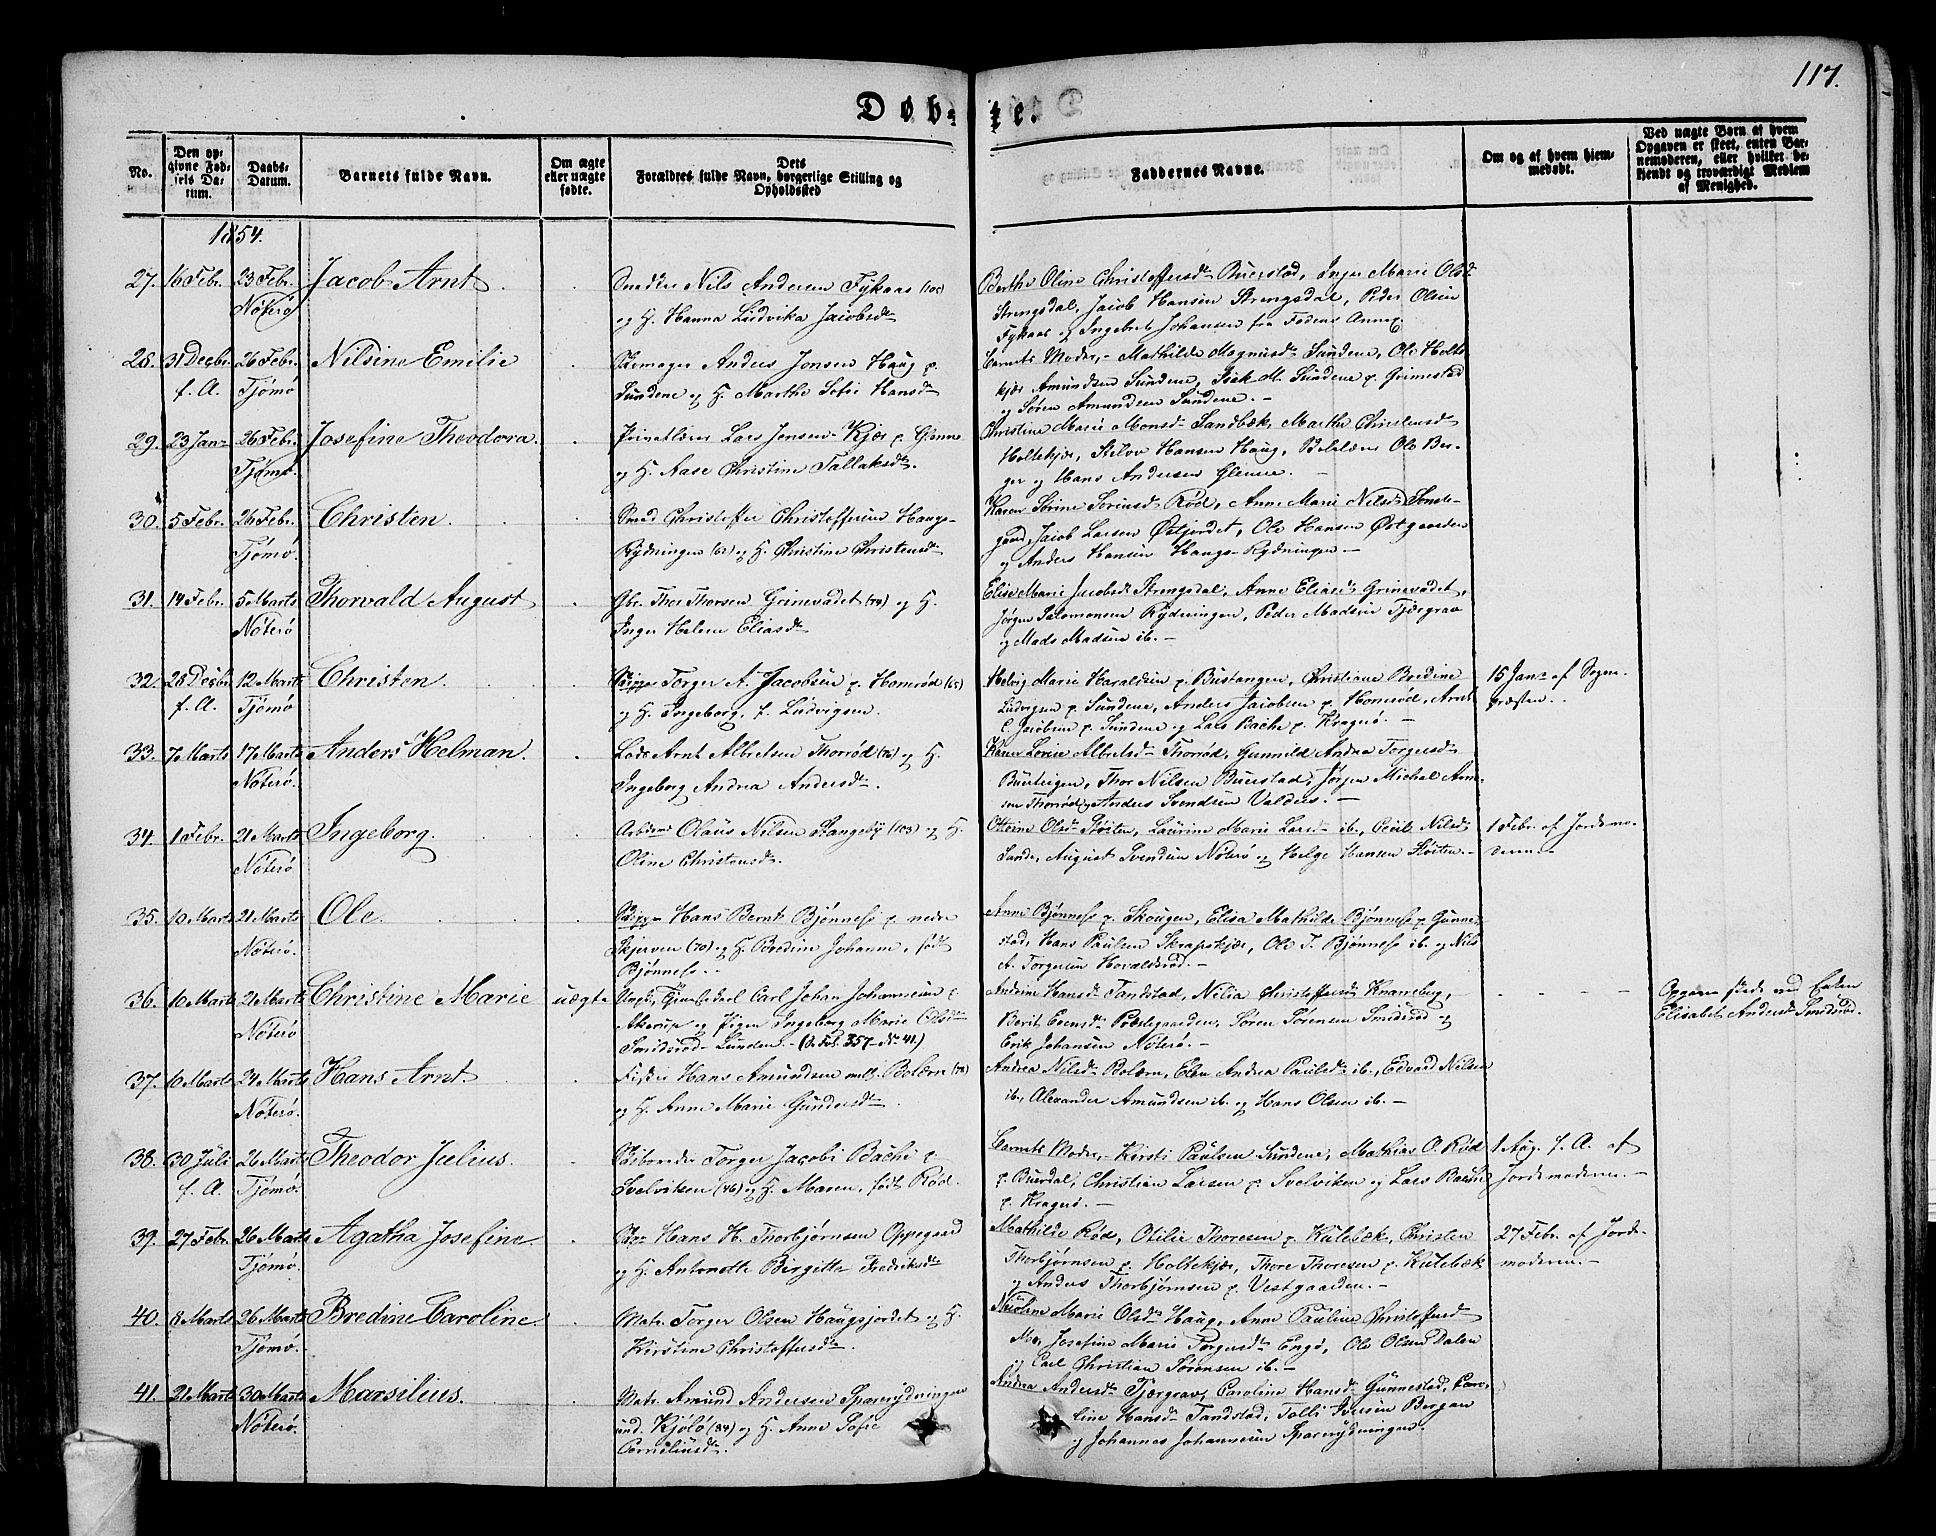 117.
Døbte.
No.
Den op-
givne Fød-
sels Da-
tum.
Daabs-
Datum.
Barnets fulde Navn.
Om ægte
eller uægte
fødte.
Dets
Forældres fulde Navn, borgerlige Stilling og
Opholdssted
Faddernes Navne.
Om og af hvem hjem-
medøbt.
Ved uægte Børn af hvem
Opgaven er skeet, enten Bar-
nemoderen, eller hvilket be-
kjendt og troværdigt Medlem
af Menighed.
1854.
27. 16 Febr. 23 Febr. Jacob Arnt
Nøterø
Nils Andersen Fykaas
og H. Hanna Ludvika Jacobsdr
Berthe Oline Christoffersdr Buerstad, Inger Marie Olsdr
Strengsdal, Jacob Hansen Strengsdal, Peder Olsen
Fykaas og Ingebret Johansen fra Fødens Annex.
28. 31 Decbr. 26 Febr. Nilsine Emilie
f. A. Tjømø
Skomager Anders Jonsen Haug p.
Sundene og H. Marthe Sofie Hansdr
Barnets Moder, Mathilde Magnusdr Sundene, Ole Holte-
kjær Amundsen Sundene, Isak M. Sundene p. Grimestad
og Søren Amundsen Sundene.
29. 23 Janr 26 Febr. Josefine Theodora.
Tjømø.
Lars Jensen Kjær p. Glenne
og H. Aase Christine Tallaksdr.
Christine Marie Monsdr Sandbæk, Marthe Christensdr
Holtekjær, Hansen Haug, Ole Ber-
ger og Hans Andersen Glenne.
30. 5 Febr. 26 Febr. Christen.
Tjømø.
Smed Christoffer Christoffersen Haugs-
Rydningen (62) og H. Christine Christensdr
Karen Sørine Sørensdr Rød, Anne Marie Nilsdr Sønste-
gaard, Jacob Larsen Østjordet, Ole Hansen Østgaarden
og Anders Hansen Haugs-Rydningen
31. 14 Febr. 5 Marts Thorvald August
Nøterø
Thor Thorsen Grinevadet (74) og H.
Inger Helene Eliasdr
Elise Marie Jacobsdr Strengsdal, Anne Eliasdr Grinevadet,
Jørgen Salomonsen Rydningen, Peder Madsen Tjærgrav
og Mads Madsen ib.
32. 28 Decbr. 12 Marts Christen.
f. A. Tjømø
Skipper Torger A. Jacobsen p. Homrød (65)
og H. Ingeborg, f. Ludvigsen.
Helvig Marie Haraldsen p. Bustangen, Christiane Bredine
Ludvigsen p. Sundene, Anders Jacobsen p. Homrød, Arnt
C. Jacobsen p. Sundene og Lars Bache p. Kragerø.
15 Janr af Sogne-
præsten.
33. 7 Marts 17 Marts Anders Helman.
Nøterø.
Lods Arnt Albretsen Thorrød (76) og H.
Ingeborg Andrea Andersdr.
Karen Lovise Albretsdr Thorrød, Gunnild Andrea Torgersdr
Thor Nilsen Buerstad, Jørgen Michal Arne-
sen Thorrød og Anders Svendsen Valders.
34. 1 Febr. 21 Marts Ingeborg.
Nøterø
Arbdsmd Olaus Nilsen Stangeby (103) og H.
Oline Christensdr.
Olsdr Støiten, Laurine Marie Larsdr ib., Cecile Nilsdr
Sande, August Svendsen Nøterø og Helge Hansen Støiten.
1 Febr. af Jordemo-
deren.
35. 10 Marts 21 Marts Ole.
Nøterø.
Skipper Hans Bernt Bjønness p. nedre
Skjerven (70) og H. Bredine Johanne, født
Bjønness.
Anne Bjønness p. Skougen, Elisa Mathilde Bjønness p. Gunne-
stad, Hans Paulsen Skrapskjær, Ole T. Bjønness ib. og Nils
A. Torgersen Hovaldsrød.
36. 10 Marts 21 Marts Christine Marie uægte
Nøterø
Ungk. Carl Johan Johannesen p.
Akerup og Pigen Ingeborg Marie Olsdr
Smidsrød-Lunden. (S. Fol. 357 No 41.)
Andrine Hansdr Tandstad, Nilia Christoffersdr Knarreberg,
Berit Evensdr Præstegaarden, Søren Sørensen Smidsrød og
Erik Johansen Nøterø.
Opgaven skede ved Enken
Elisabet Andersdr Smidsrød.
37. 10 Marts 24 Marts Hans Arnt
Nøterø.
Fisker Hans Amundsen mell. Bolærn (78)
og H. Anne Marie Gundersdr
Andrea Nilsdr Bolærn, Elen Andrea Paulsdr ib., Edvard Nilsen
ib., Alexander Amundsen ib. og Hans Olsen ib.
38. 30 Juli 26 Marts Theodor Julius.
f. A. Tjømø.
Torger Jacobi Bache p.
Svelviken (46) og H. Maren, født Rød.
Barnets Moder, Kirsti Paulsen Sundene, Mathias O. Rød
p. Buerdal, Christian Larsen p. Svelviken og Lars Bache
p. Kragerø.
1 Aug. f. A. af
Jordemoderen.
39. 27 Febr. 26 Marts Agatha Josefine.
Tjømø.
Hans H. Thorbjørnsen Oppegaard
og H. Antonette Birgitte Fredriksdr
Mathilde Rød, Otilie Thoresen p. Kulebæk, Christen
Thorbjørnsen p. Holtekjær, Thore Thoresen p. Kulebæk
og Anders Thorbjørnsen p. Vestgaarden.
27 Febr. af Jorde-
moderen.
40. 8 Marts 26 Marts Bredine Caroline.
Tjømø.
Matr. Torger Olsen Haugsjordet og H.
Kirstine Christoffersdr.
Marie Olsdr Haug, Anne Pauline Christoffersdr
Mo, Josefine Marie Torgersdr Engø, Ole Olsen Dalen
og Carl Christian Sørensen ib.
41. 21 Marts 30 Marts Marsilius.
Nøterø.
Matr. Amund Andersen Sparrydningen
und. Kjølø (84) og H. Anne Sofie
Corneliusdr.
Andrea Andersdr Tjærgrav, Caroline Hansdr Gunnestad, Caro-
line Hansdr Tandstad, Tolli Iversen Bergan
og Johannes Johannesen Sparrydningen.